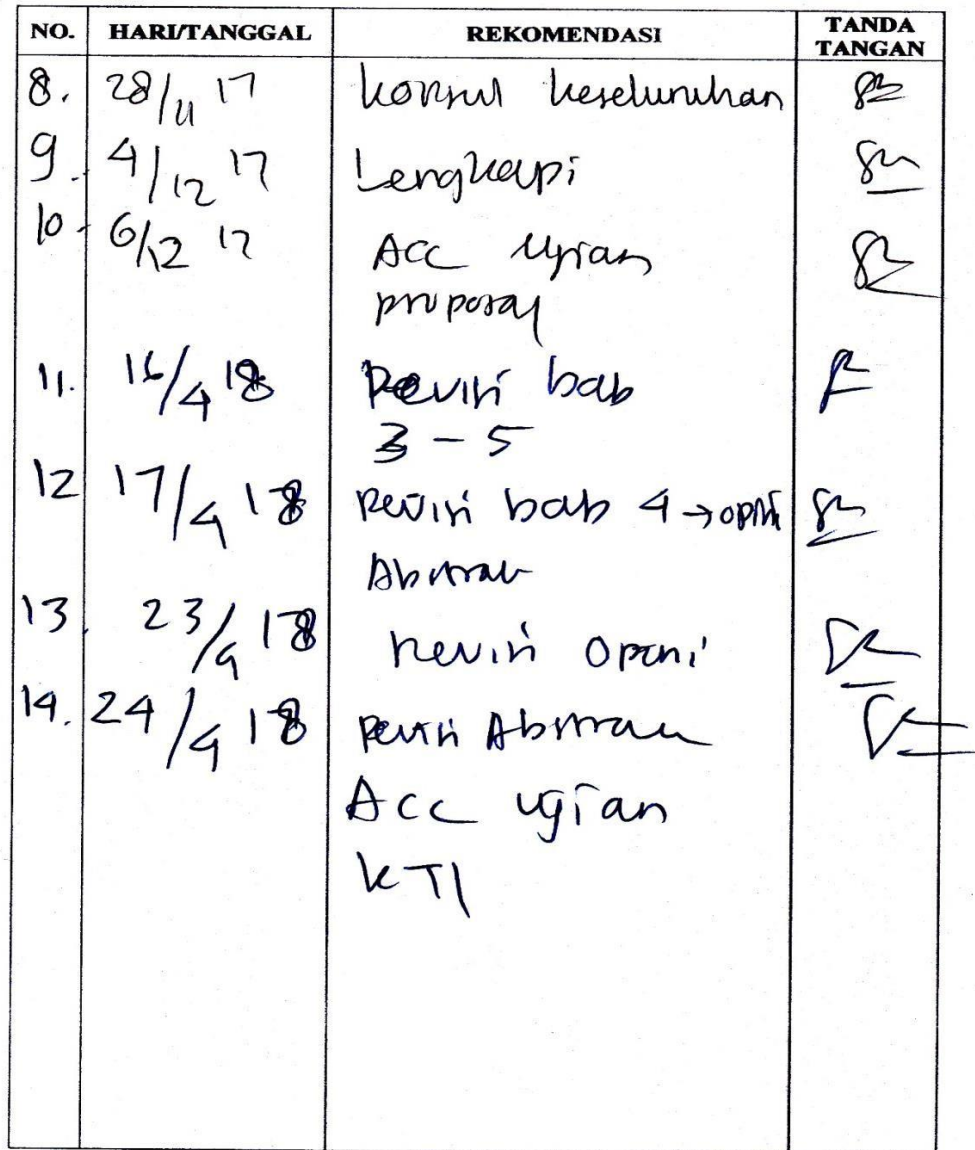 NO. HARI/TANGGAL REKOMENDASI TANDA TANGAN
8. 28/11 17 Konsul keseluruhan
9. 4/12 17 Lengkapi
10. 6/12 17 Acc Ujian
proposal
11. 16/4 18 Revisi bab
3 - 5
12 17/4 18 Revisi bab 4 → opini
Abstrak
13. 23/4 18 Revisi Opini
14. 24/4 18 Revisi Abstrak
Acc ujian
KTI